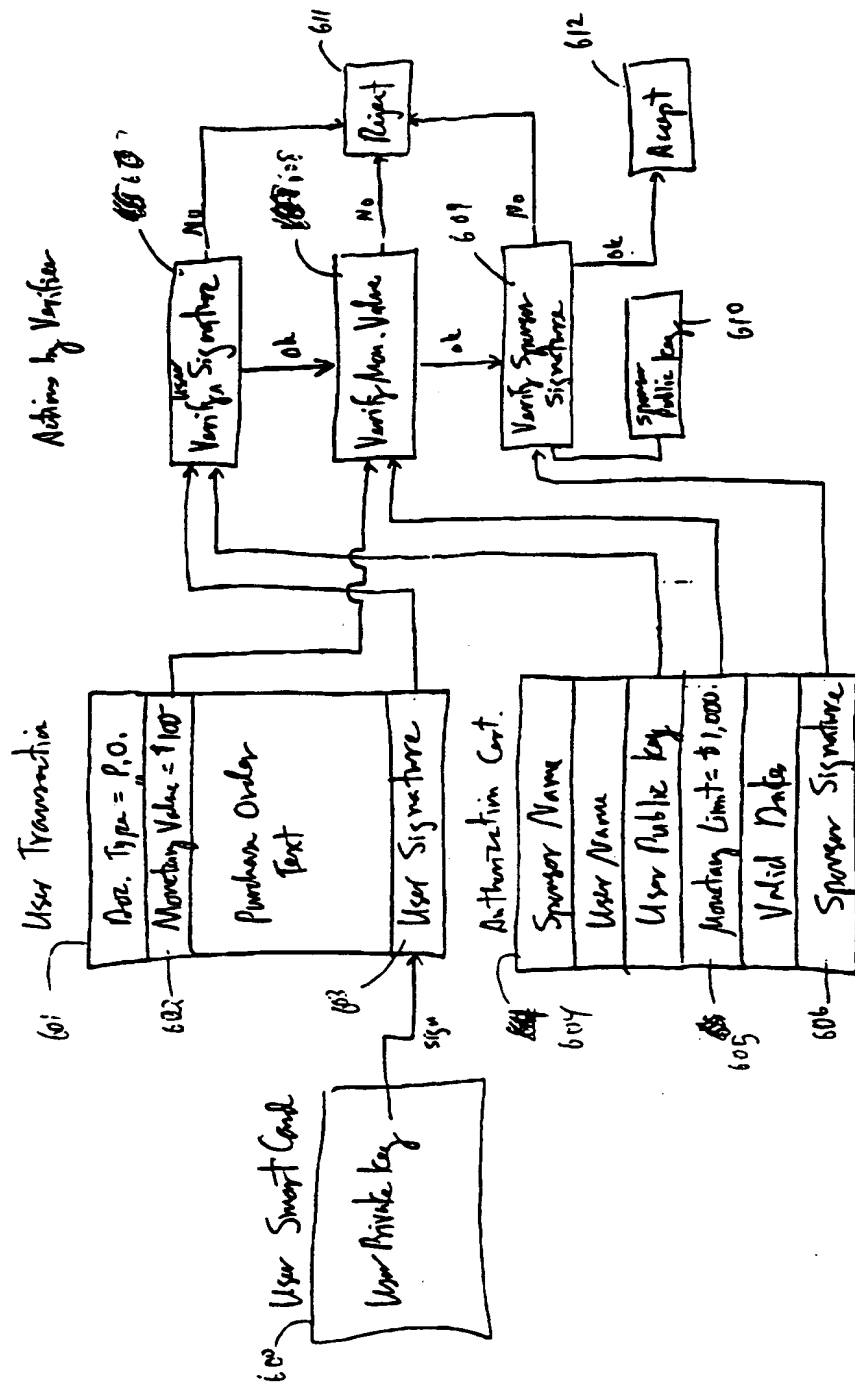 User Smart Card
600
User Private Key
sign
User Transaction
601
Doc. Type = P.O.
602
Monetary Value = $100
Purchase Order
Text
603
User Signature
Authorization Cert.
604
Sponsor Name
User Name
User Public Key
605
Monetary Limit = $1,000.
Valid Dates
606
Sponsor Signature
Actions by Verifier
Verify User Signature
No
Ok
Verify Mon. Value
No
Ok
609
Verify Sponsor
Signature
No
Ok
Sponsor
Public Key
610
611
Reject
612
Accept